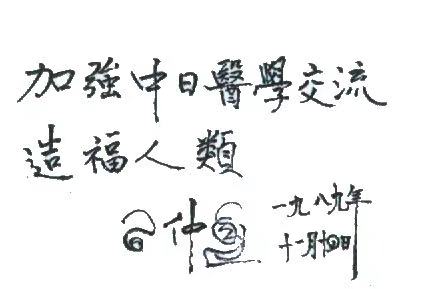 加強中日醫學交流
造福人類
仲
一九八九年
十一月十四日